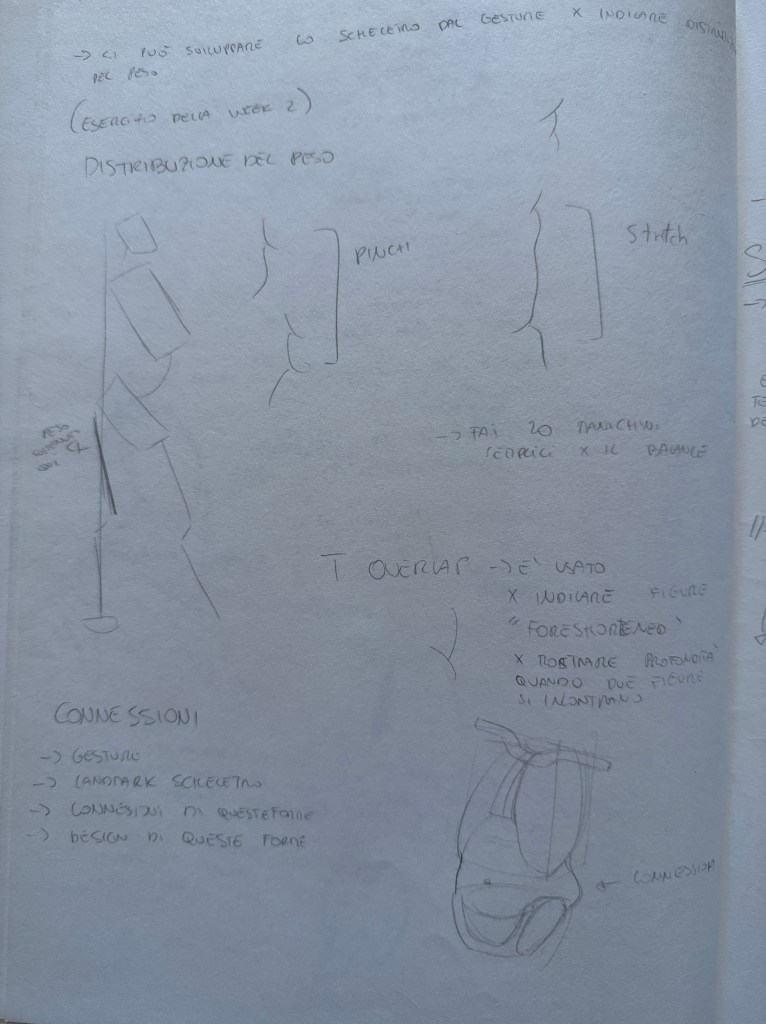 → CI PUÒ SVILUPPARE LO SCHELETRO DAL GESTURE X INDICARE
DEL PESO
(ESERCIZIO DELLA WEEK 2)
DISTRIBUZIONE DEL PESO
PINCH
Stretch
PESO
QUI
→ FAI 20 MANICHINI
SEMPLICI X IL BALANCE
T OVERLAP → E' USATO
X INDICARE FIGURE
"FORESHORTENED"
X MOSTRARE PROFONDITA'
QUANDO DUE FIGURE
SI INCONTRANO
CONNESSIONI
→ GESTURE
→ LANDMARK SCHELETRO
→ CONNESIONI DI QUESTE FORME
→ DESIGN DI QUESTE FORME
← CONNESSIONI